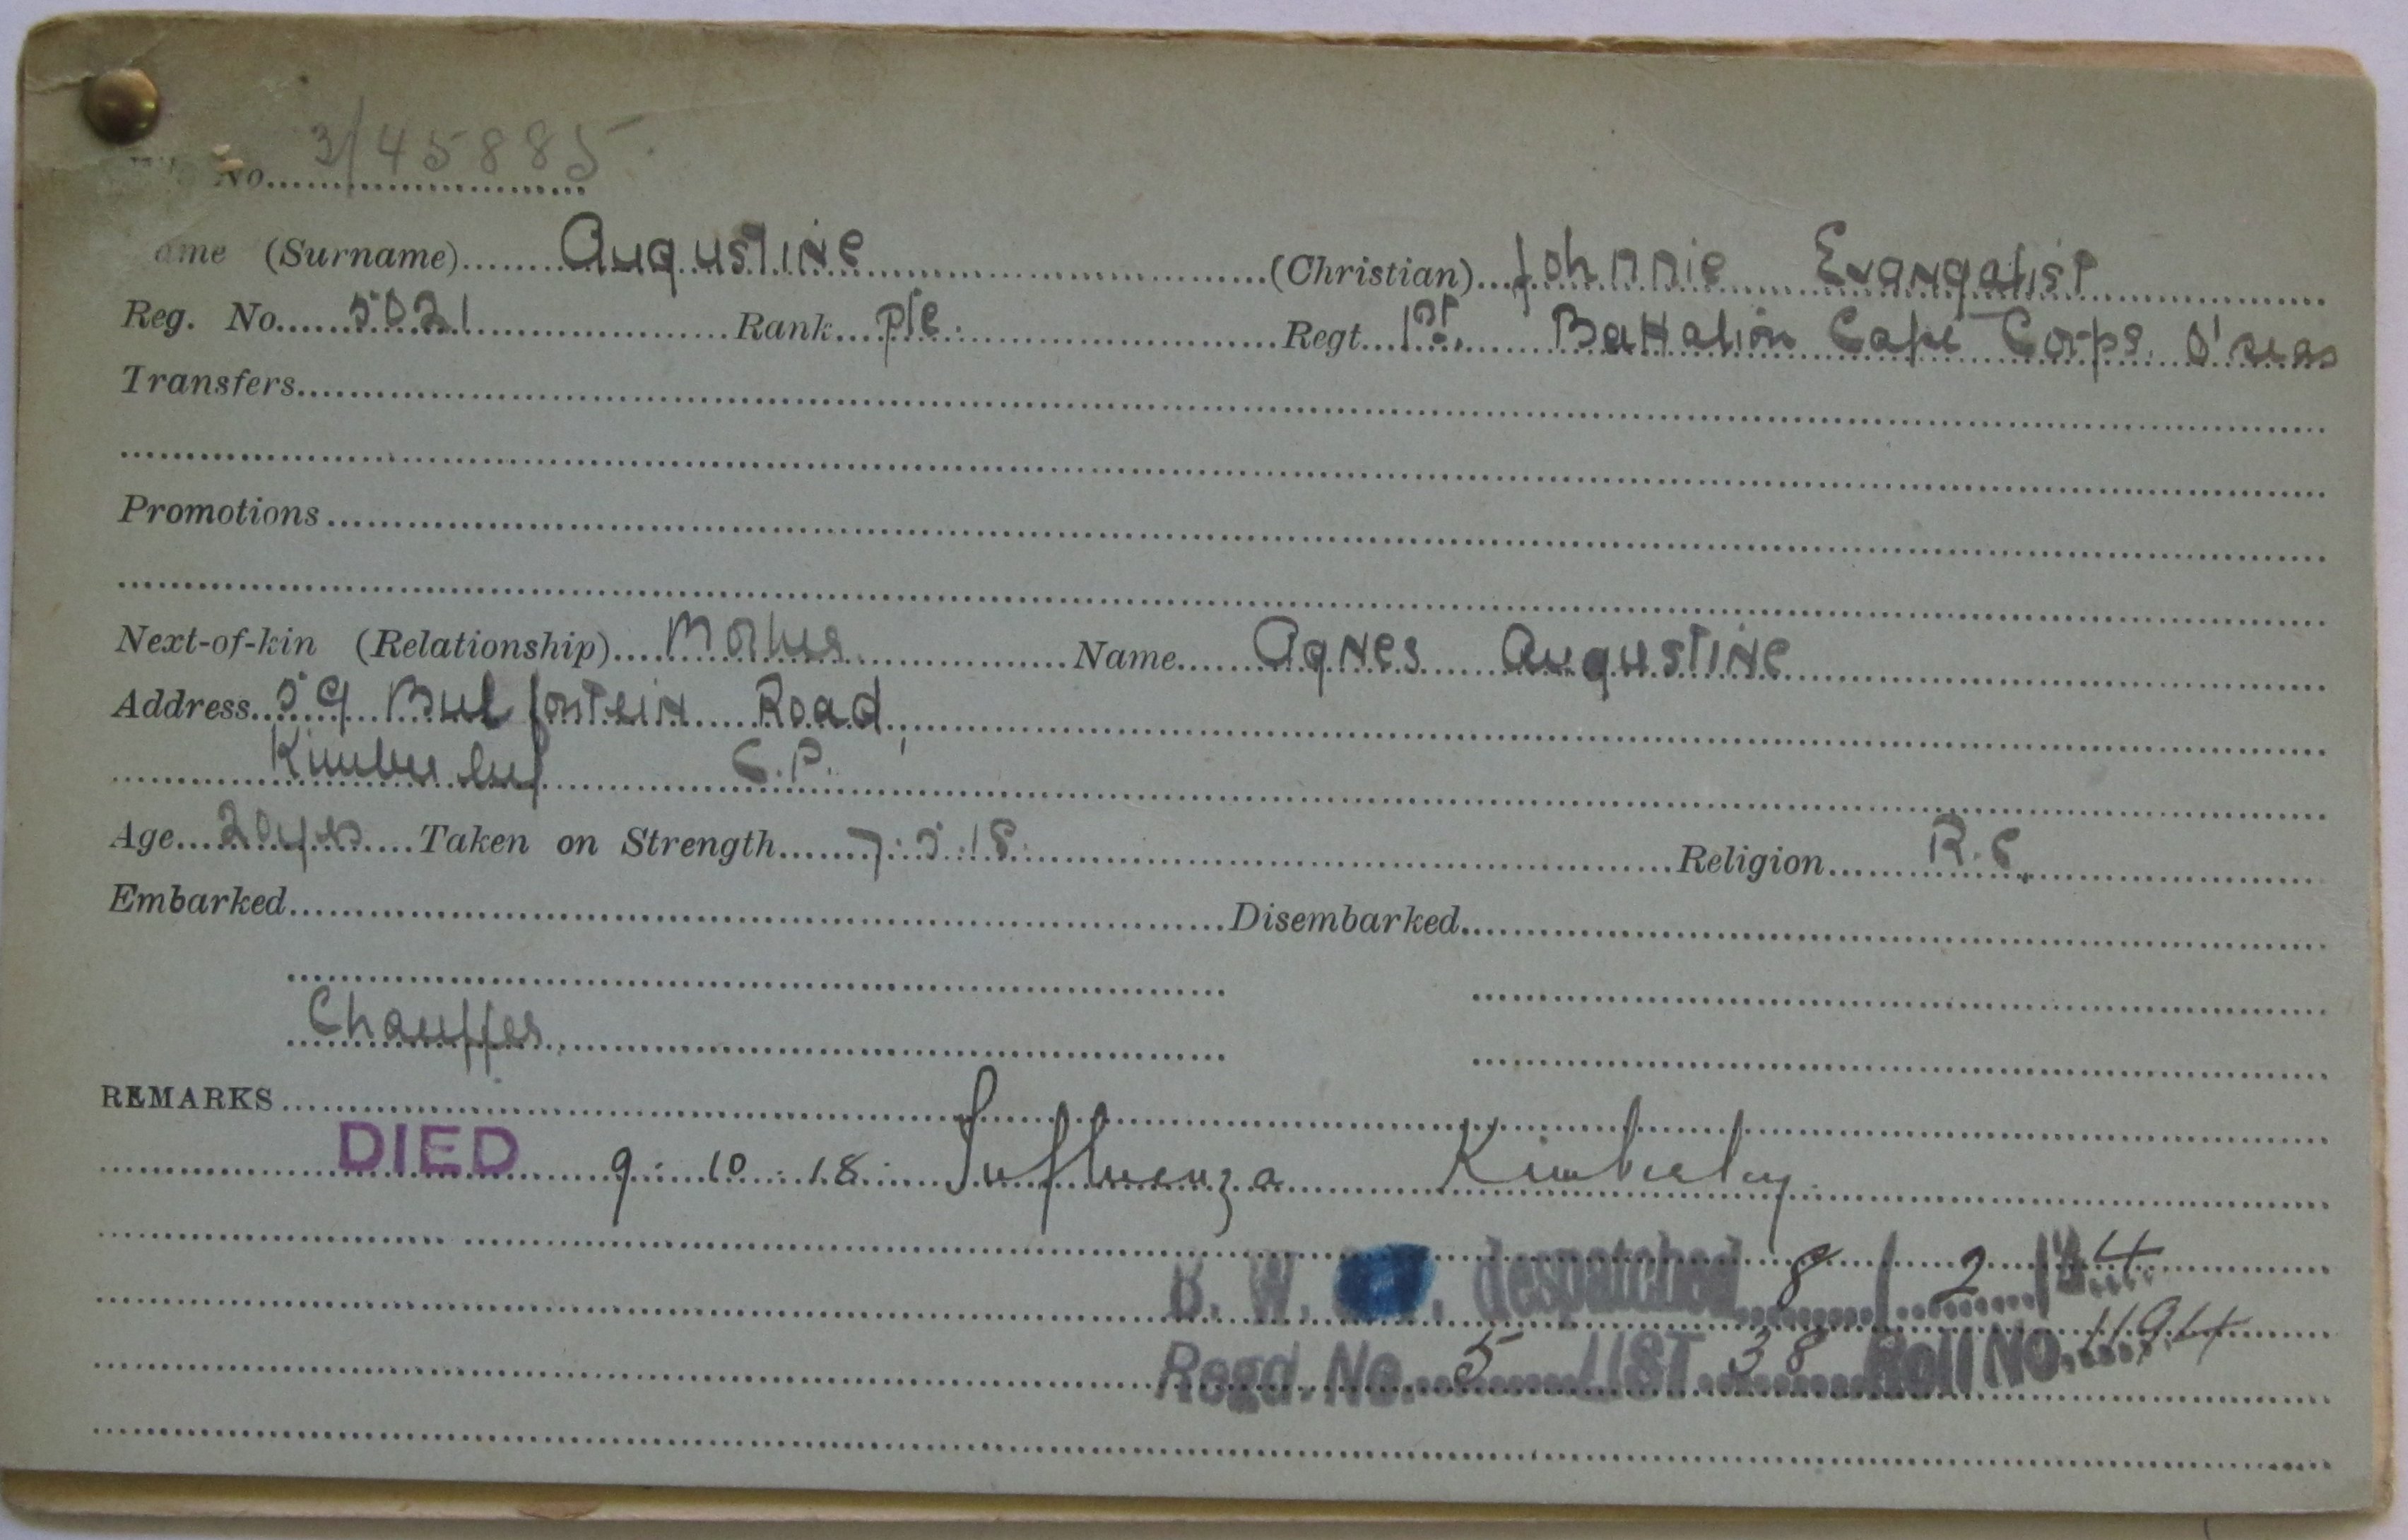 No. 3/45885
ame (Surname) Augustine (Christian) Johnnie Evangalist
Reg. No. 5021 Rank pte. Regt. 1st. Battalion Cape Corps. O'seas
Transfers
Promotions
Next-of-kin (Relationship) Mother Name Agnes Augustine
Address 59 Bulfontein Road,
Kimberley C.P.
Age 20yrs Taken on Strength 7.5.18. Religion R.C.
Embarked Disembarked
Chauffer
REMARKS
DIED 9.10.18. Influenza Kimberley.
B. W. despatched 8/2/24
Regd. No. 5 LIST 38 Roll No. 1194